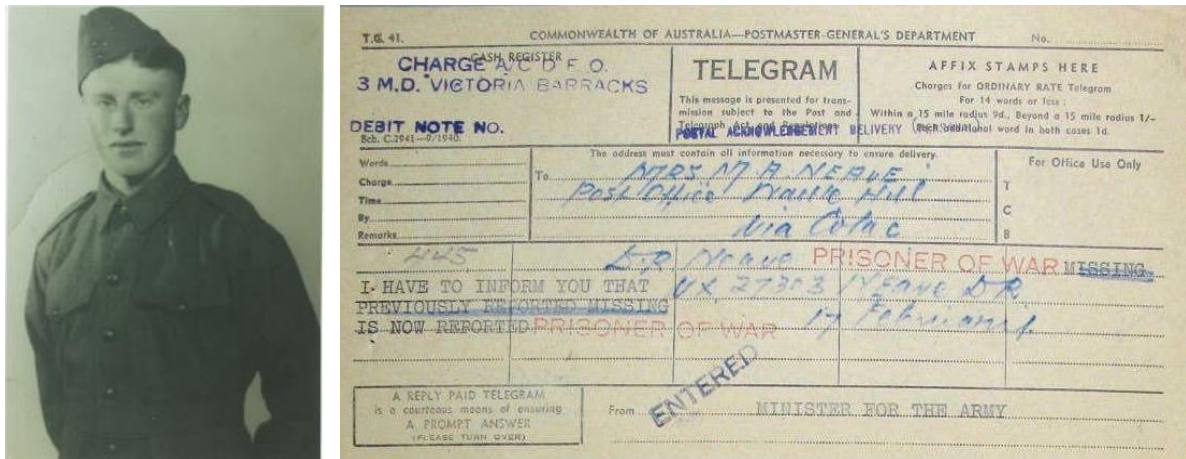 T.G. 41.
COMMONWEALTH OF AUSTRALIA—POSTMASTER-GENERAL'S DEPARTMENT
No.
CASH REGISTER
CHARGE A/C D F O.
3 M.D. VICTORIA BARRACKS
DEBIT NOTE NO.
Sch. C.2941—9/1940.
TELEGRAM
This message is presented for trans-
mission subject to the Post and
Telegraph Act and Regulations
POSTAL ACKNOWLEDGEMENT DELIVERY
AFFIX STAMPS HERE
Charges for ORDINARY RATE Telegram
For 14 words or less :
Within a 15 mile radius 9d., Beyond a 15 mile radius 1/-
Each additional word in both cases 1d.
Words
Charge
Time
By
Remarks
The address must contain all information necessary to ensure delivery.
To MRS M. A. NEAVE
Post Office Hill
Via Colac
For Office Use Only
T
C
B
445
D.R Neave PRISONER OF WAR MISSING
I HAVE TO INFORM YOU THAT VX 27303 NEAVE D R
PREVIOUSLY REPORTED MISSING
IS NOW REPORTED PRISONER OF WAR 17 February
ENTERED
A REPLY PAID TELEGRAM
is a courteous means of ensuring
A PROMPT ANSWER
(PLEASE TURN OVER)
From MINISTER FOR THE ARMY